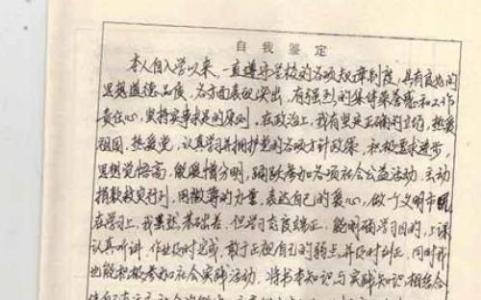 自我鉴定
本人自入学以来,一直遵守学校的各项规章制度,具有良好的
思想道德品质,各方面表现突出,有强烈的集体荣誉感和工作
责任心,坚持实事求是的原则。在政治上,我有坚定正确的立场,热爱
祖国,热爱党,认真学习并拥护党的各项方针政策,积极要求进步,
思想觉悟高,能爱憎分明,踊跃参加各项社会公益活动,主动
捐款救灾行列,用微薄的力量,表达自己的爱心,做个文明市民
在学习上,我虽然基础差,但学习态度端正,能明确学习目的,上课
认真听讲,作业及时完成,敢于正视自己的弱点,并及时纠正,同时我
也能积极参加社会实践活动,将书本知识与实践知识相结合